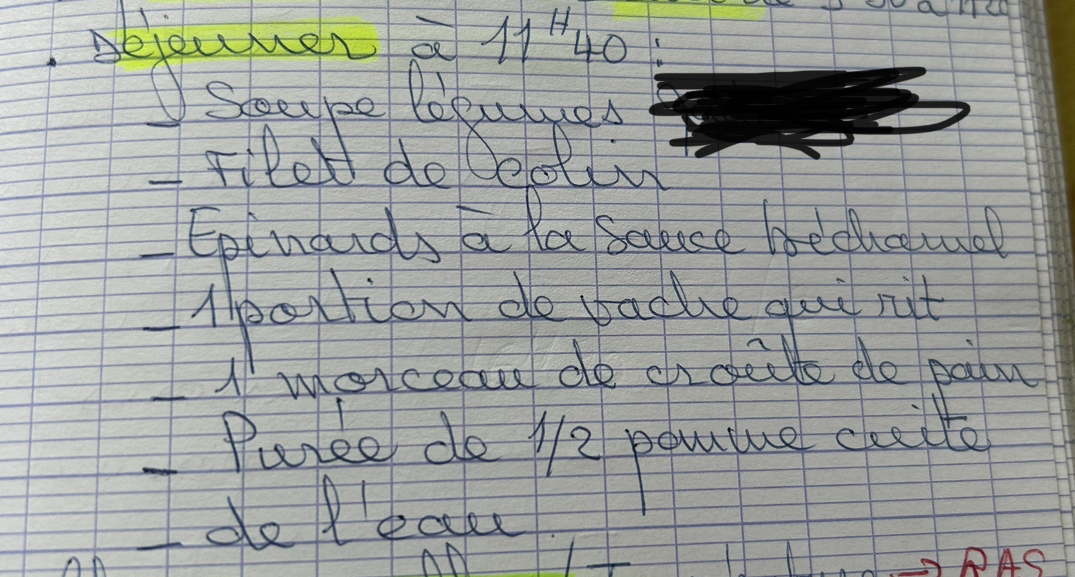 . Déjeuner à 11H40 :
- Soupe légumes
- Filet de Colin
- Epinards à la Sauce béchamel
- 1 portion de vache qui rit
- 1 morceau de croûte de pain
- Purée de 1/2 pomme cuite
- de l'eau.
→ RAS